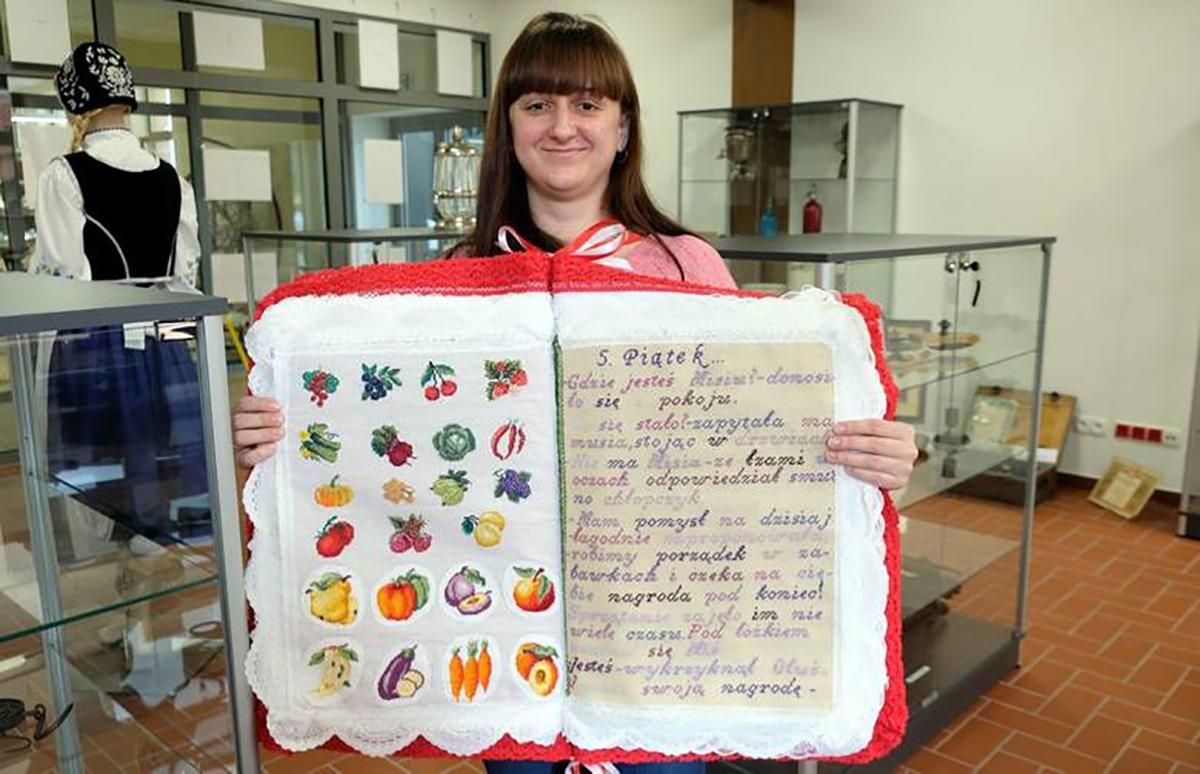 5. Piątek...
-Gdzie jesteś Misiu?-donosi
ło się pokoju.
się stało?-zapytała ma
musia, stojąc w drzwiach
Nie ma Misia-ze łzami w
oczach odpowiedział smut
no chłopczyk
-Mam pomysł na dzisiaj
-łagodnie zaproponowała,
-robimy porządek w za-
bawkach i czeka na cie-
bie nagroda pod koniec!
Sprzątanie zajęło im nie
wiele czasu. Pod łóżkiem
się
jesteś-wykrzyknął Oluś
swoją nagrodę-